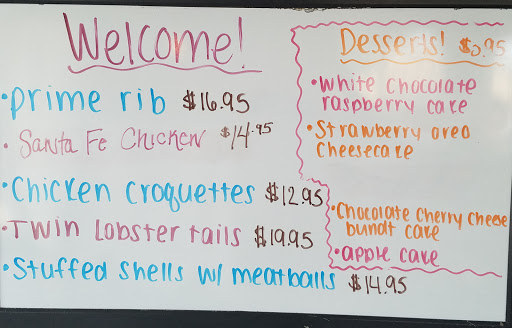 Welcome!
• Prime rib $16.95
• Santa Fe Chicken $14.95
• Chicken Croquettes $12.95
• Twin lobster tails $19.95
• Stuffed shells w/ meatballs $14.95
Desserts!
• White chocolate
raspberry cake
• Strawberry oreo
cheesecake
• Chocolate cherry cheese
bundt cake
• apple cake